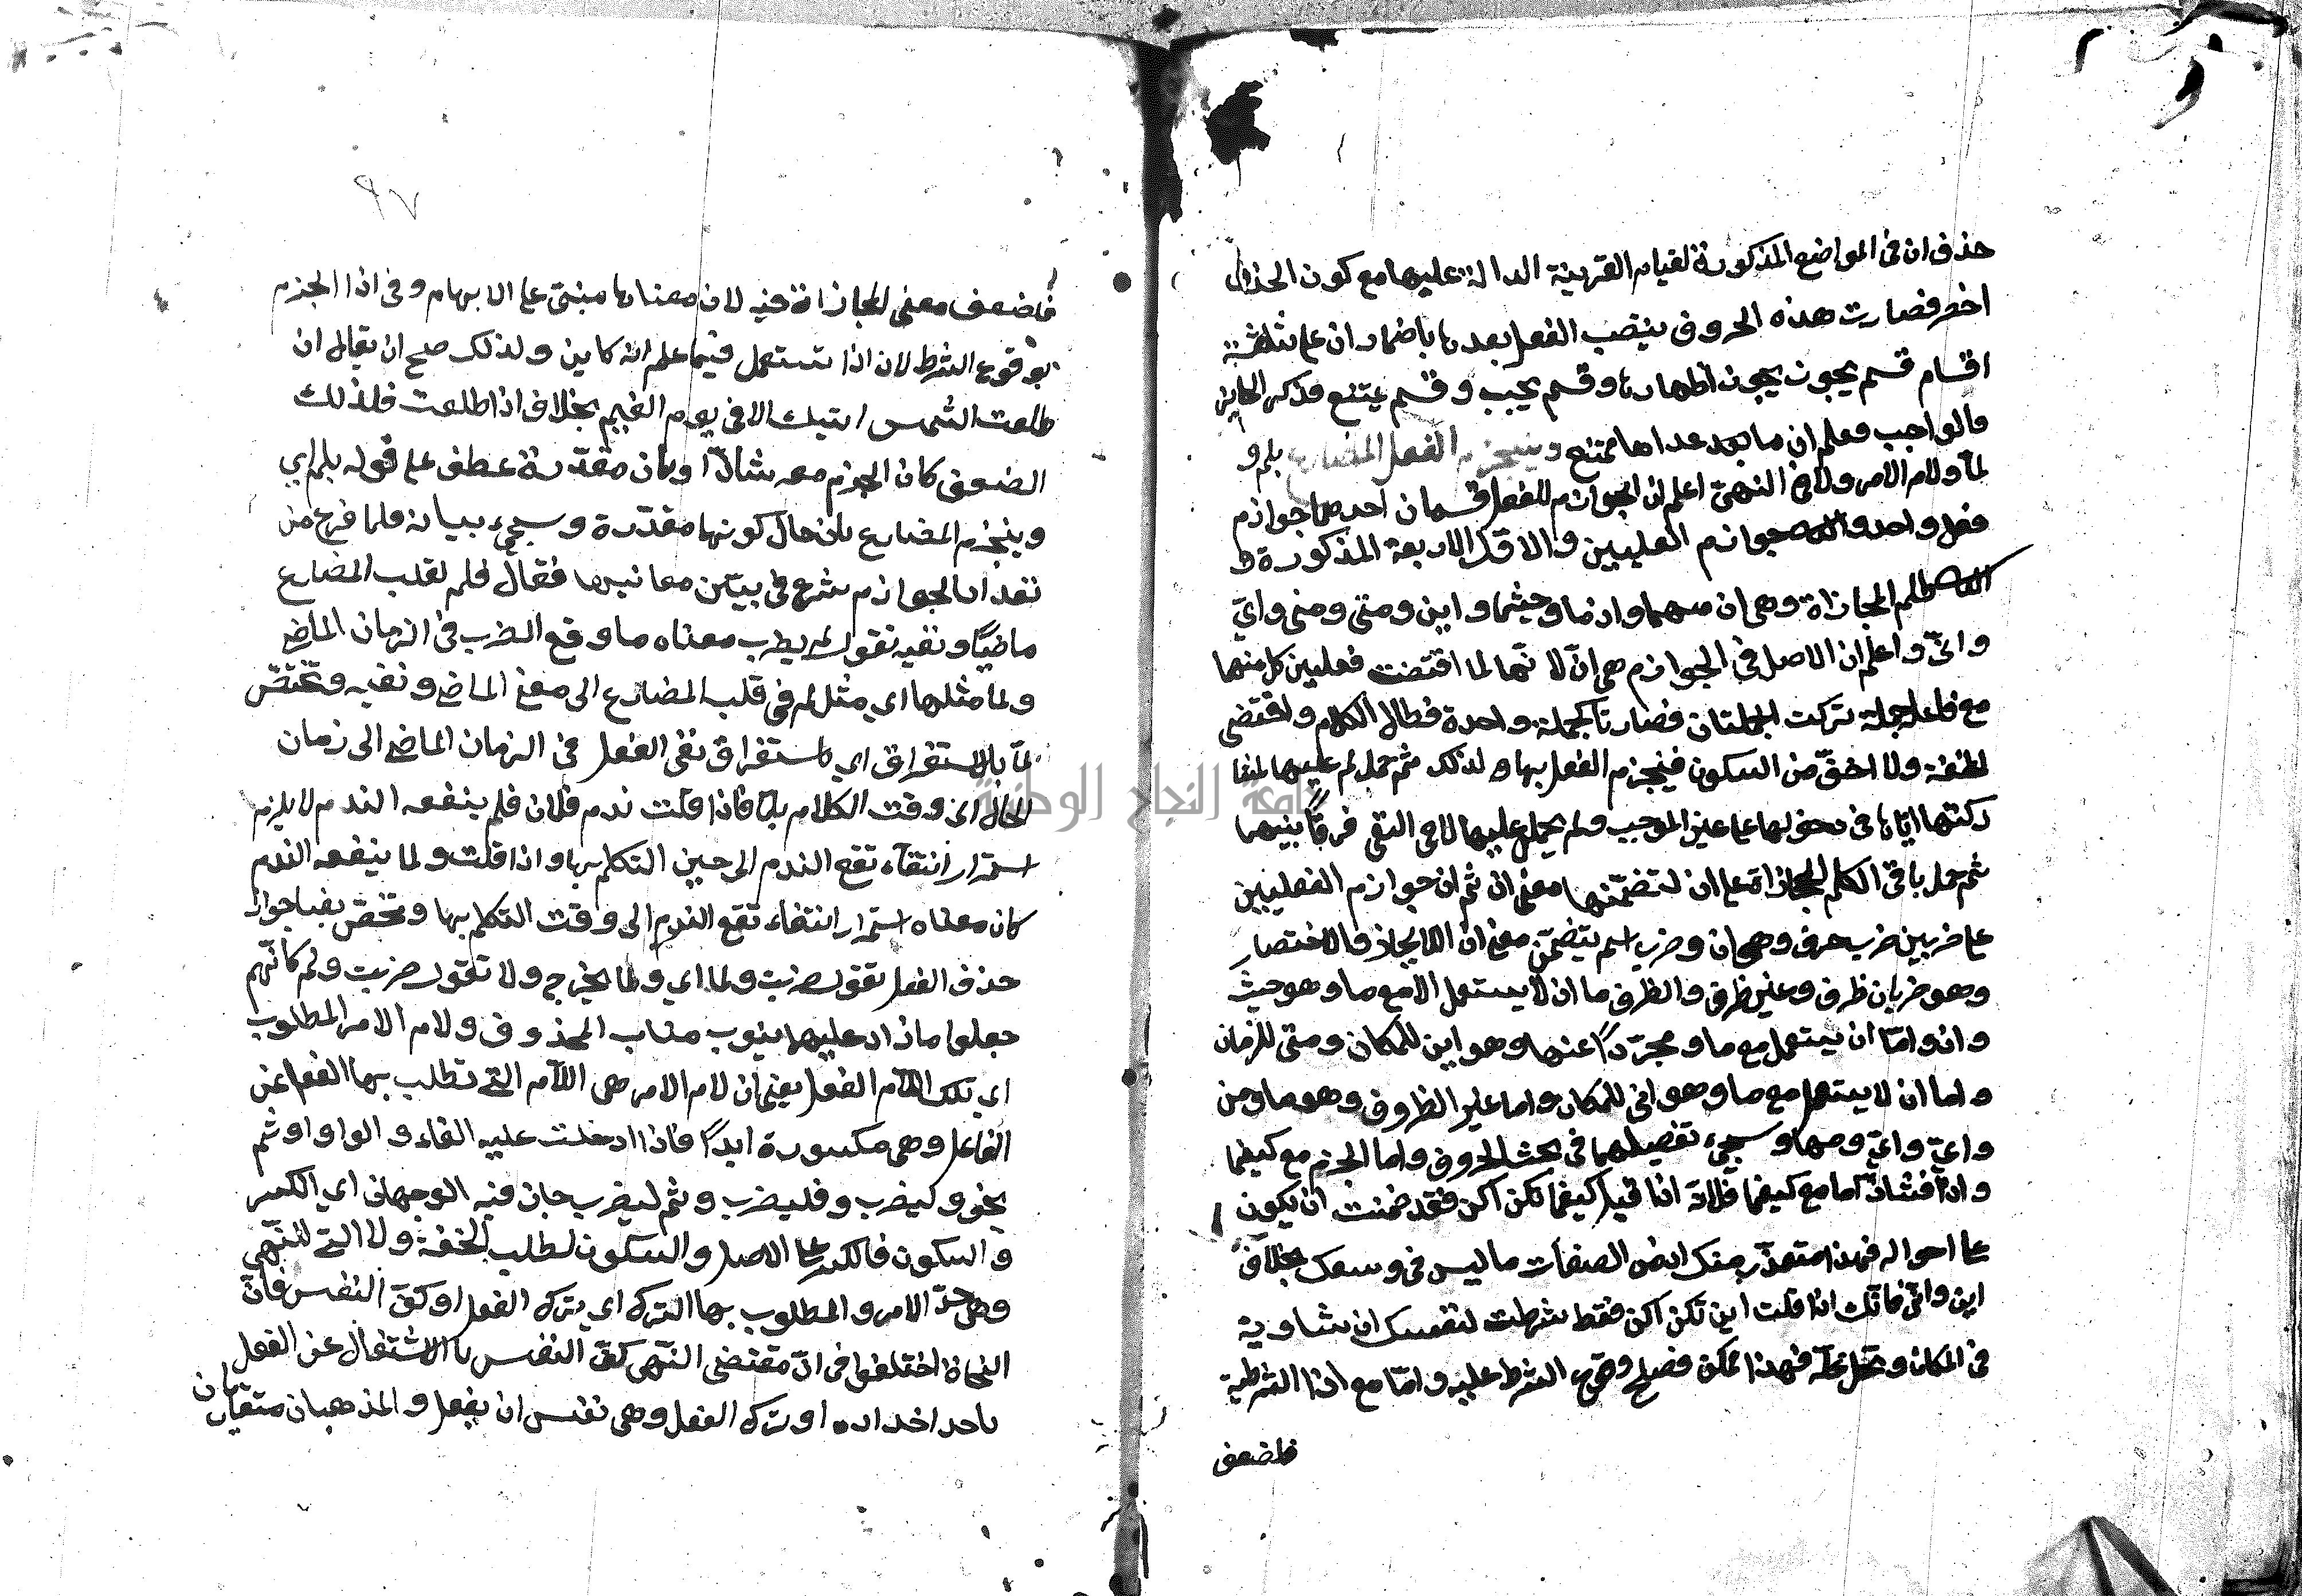 حذف ان فى المواضع المذكورة لقيام القرينة الدالة عليها مع كون الحذف
اخصر فصارت هذه الحروف ينتصب الفعل بعدها باضمار ان على ثلثة
اقسام قسم يجوز يجوز اظهارها وقسم يجب وقسم يمتنع فذكر الجايز
والواجب فعلم ان ما بعد عداها ممتنع وينجزم الفعل المضارع بلم و
لمّا ولام الامر ولا فى النهىّ اعلم ان الجوازم للفعل قسمان احدهما جوازم
فعل واحد و جوازم الفعليين والاول الاربعة المذكورة و
كلم المجازاة وهى ان مهما واذما وحيثما واين ومتى ومن واىّ
وانّى واعلم ان الاصل فى الجوازم هى انّ لا نّها لما اقتضت فعلين كل منهما
مع فاعله جملة تركت الجملتان فصارتا كجملة واحدة فطال الكلام واقتضى
لخفة ولا اخفّ من السكون فينجزم الفعل بها ولذلك ثم حمل لم عليها
ايّاها فى دخولها على عين الموجب ولم يحمل عليها لا فى النفى فرقًا بينهما
ثم حمل باقى الكلم المجازاة على ان لتضمّنها معنى ان ثم ان جوازم الفعليين
على ضربين ضرب حرف وهى ان وضرب اسم يتضمّن معنى ان للايجاز والاختصار
وهو ضربان ظرف وغير ظرف والظرف ما ان لا يستعمل الا مع ما وهو حيث
واذ وامّا ان يستعمل مع ما ومجرّدًا عنها وهو اين للمكان ومتى للزمان
واما ان لا يستعمل مع ما وهو انى للمكان واما غير الظروف وهو ما ومن
واىّ واىّ ومهما وسيجىء تفصيلهما فى بحث الحروف واما الجزم مع كيفما
واذا فشاذّ اما مع كيفما فلانّه اذا قيل كيفما تكن اكن فقد ضمنت ان يكون
على احواله فهذا متعذّر منك الصفات ما ليس فى وسعك بخلاف
اين وانّى فانّك اذا قلت اين تكن اكن فقط شرطت لنفسك ان تساويه
فى المكان وتحل محلّه فهذا ممكن فصلح وقوع الشرط عليه وامّا مع اذا الشرطية
فلضعف
٩٧
فلضعف معنى المجازاة فيه لان معناها مبنىّ على الابهام وفى اذا الجزم
بوقوع الشرط لان اذا تستعمل فيما علم انه كاين ولذلك صح ان يقال ان
طلعت الشمس اتيك الا فى يوم الغيم بخلاف اذا طلعت فلذلك
الضعف كان الجزم معه شاذّا وبان مقدّرة عطف على قوله بلم اى
وينجزم المضارع بان حال كونها مقدّرة وسيجىء بيانه فلما فرغ من
تعداد الجوازم شرع فى بيّن معانيها فقال فلم لقلب المضارع
ماضيًا ونفيه تقول لم يضرب معناه ما وقع الضرب فى الزمان الماضى
ولما مثلها اى مثل لم فى قلب المضارع الى معنى الماضى ونفيه وتختصّ
لمّا بالاستغراق اى باستغراق نفى الفعل فى الزمان الماضى الى زمان
الحال اى وقت الكلام بلمّا فاذا قلت ندم فلان فلم ينفعه الندم لا يلزم
استمرار انتفاء نفع الندم الى حين التكلم بها واذا قلت ولما ينفعه الندم
كان معناه استمرار انتفاء نفع الندم الى وقت التكلم بها وتختصّ بجواز
حذف الفعل تقول ضربت ولما اى ولما يخرج ولا تقول ضربت ولم كانّهم
جعلوا ما زاد عليها ينوب مناب المحذوف ولام الامر المطلوب
اى تلك اللّام الفعل يعنى ان لام الامر هى اللّام التى تطلب بها الفعل عن
الفاعل وهى مكسورة ابدًا فاذا ادخلت عليه الفاء والواو او ثم
نحو وليضرب وفليضرب وثم ليضرب جاز فيه الوجهان اى الكسر
والسكون فالكسر على الاصل والسكون لطلب الخفة ولا التى للنّهى
وهى ضدّ الامر والمطلوب بها الترك اى يترك الفعل او كفّ النفس فانّ
النحاة اختلفوا فى انّ مقتضى النّهى كفّ النفس بالاشتغال عن الفعل
باحد اضداده او ترك الفعل وهى نفس ان يفعل والمذهبان متقاربان
جامعة النجاح الوطنية